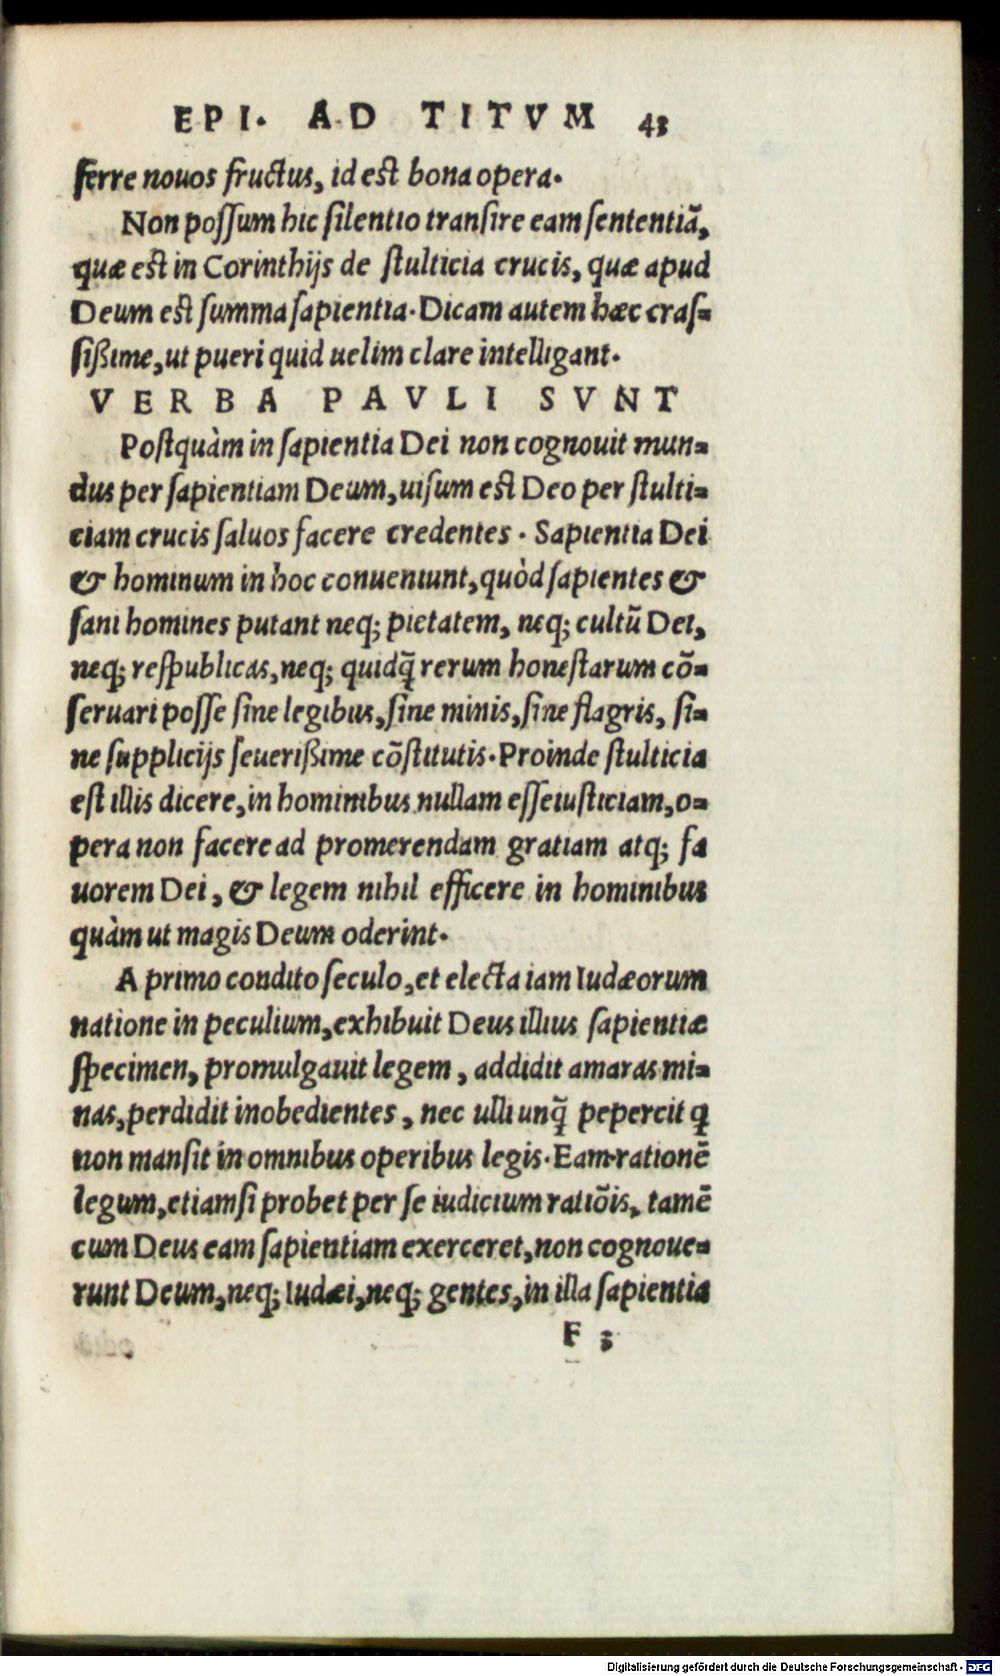 EPI. AD TITVM 43
ferre nouos fructus, id est bona opera.
Non possum hic silentio transire eam sententiã,
quæ est in Corinthijs de stulticia crucis, quæ apud
Deum est summa sapientia. Dicam autem hæc cras-
sißime, ut pueri quid uelim clare intelligant.
VERBA PAVLI SVNT
Postquàm in sapientia Dei non cognouit mun-
dus per sapientiam Deum, uisum est Deo per stulti-
ciam crucis saluos facere credentes. Sapientia Dei
& hominum in hoc conueniunt, quòd sapientes &
sani homines putant neq; pietatem, neq; cultũ Dei,
neq; respublicas, neq; quidq̃ rerum honestarum cõ-
seruari posse sine legibus, sine minis, sine flagris, si-
ne supplicijs seuerißime cõstitutis. Proinde stulticia
est illis dicere, in hominibus nullam esse iusticiam, o-
pera non facere ad promerendam gratiam atq; fa
uorem Dei, & legem nihil efficere in hominibus
quàm ut magis Deum oderint.
A primo condito seculo, et electa iam Iudæorum
natione in peculium, exhibuit Deus illius sapientiæ
specimen, promulgauit legem, addidit amaras mi-
nas, perdidit inobedientes, nec ulli unq̃ pepercit q
non mansit in omnibus operibus legis. Eam rationẽ
legum, etiamsi probet per se iudicium ratiõis, tamẽ
cum Deus eam sapientiam exerceret, non cognoue-
runt Deum, neq; Iudæi, neq; gentes, in illa sapientia
F 3
Digitalisierung gefördert durch die Deutsche Forschungsgemeinschaft - DFG